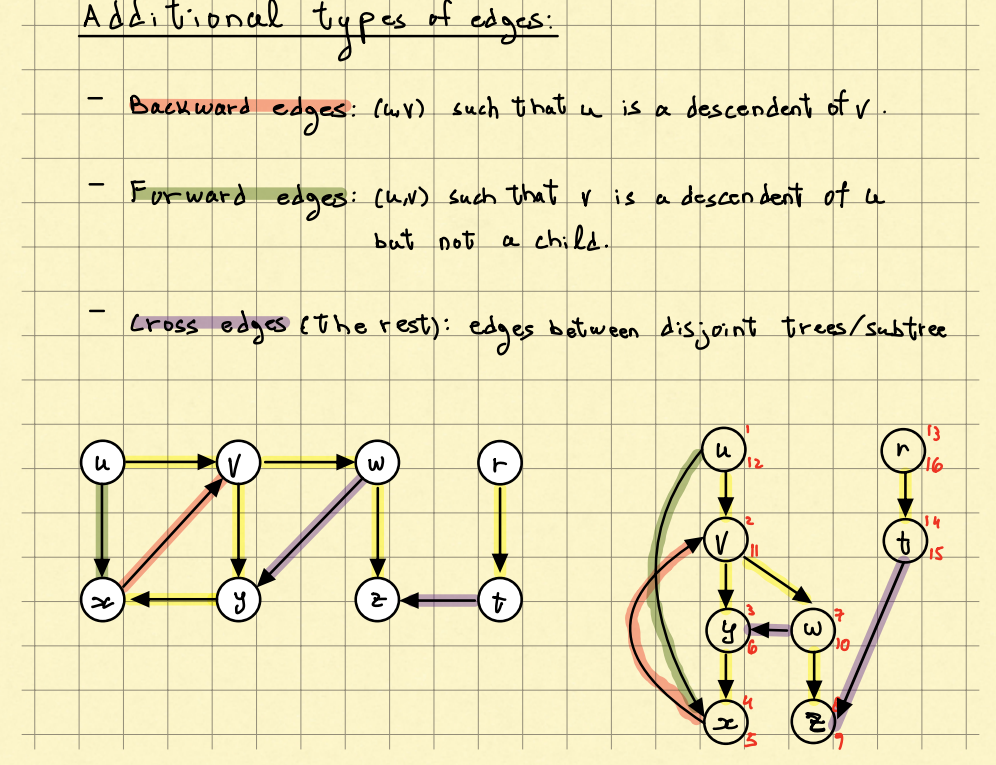 Additional types of edges:
- Backward edges: (u,v) such that u is a descendent of v.
- Forward edges: (u,v) such that v is a descendent of u
but not a child.
- Cross edges (the rest): edges between disjoint trees/subtree
u v w r
x y z t
u 1 12
r 13 16
v 2 11
t 14 15
y 3 6
w 7 10
x 4 5
z 9